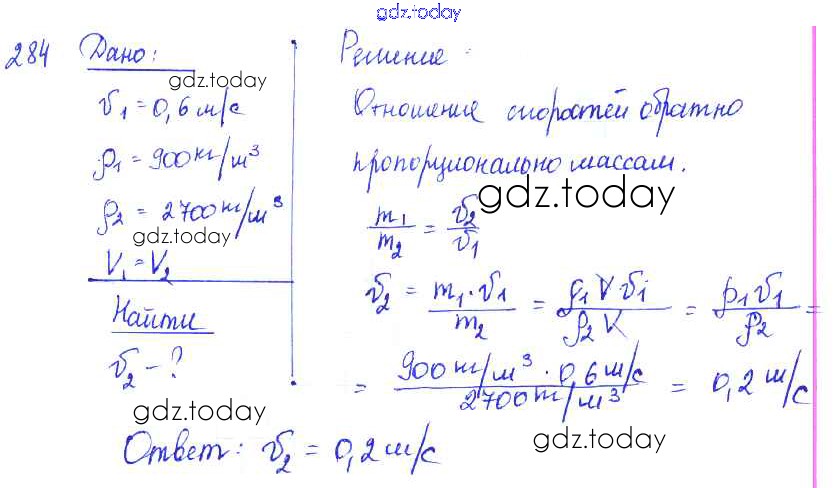 gdz.today
284 Дано:
gdz.today
υ₁ = 0,6 м/с
ρ₁ = 900 кг/м³
ρ₂ = 2700 кг/м³
gdz.today
V₁ = V₂
Найти
υ₂ - ?
gdz.today
Решение:
Отношение скоростей обратно
пропорционально массам.
gdz.today
m₁/m₂ = υ₂/υ₁
υ₂ = m₁·υ₁/m₂ = ρ₁Vυ₁/ρ₂V = ρ₁υ₁/ρ₂ =
= 900 кг/м³ · 0,6 м/с / 2700 кг/м³ = 0,2 м/с
gdz.today
Ответ: υ₂ = 0,2 м/с